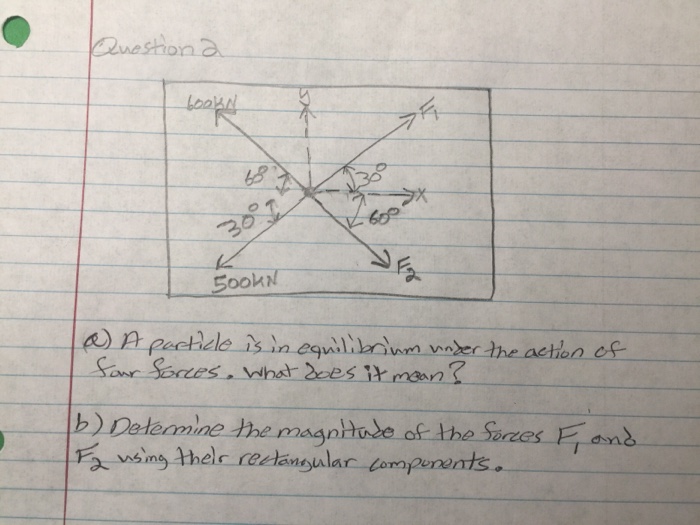 Question 2
600KN
y
F1
60°
30°
x
30°
60°
F2
500KN
a) A particle is in equilibrium under the action of
four forces. What does it mean?
b) Determine the magnitude of the forces F1 and
F2 using their rectangular components.